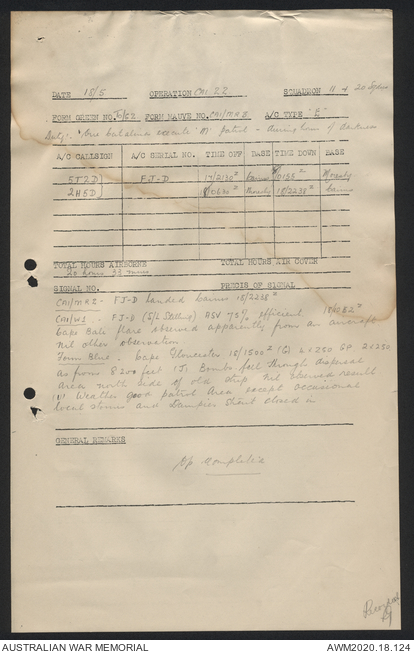 DATE 18/5 OPERATION CNS 22 SQUADRON 11 & 20 Sqdn
FORM GREEN NO. FORM MAUVE NO. A/C TYPE "E"
Duty:- One Catalina execute 'M' patrol - during hours of darkness
A/C CALLSIGN A/C SERIAL NO. TIME OFF BASE TIME DOWN BASE
5T2D FJ-D 17/2130Z Cairns Moresby
2H5D 18/0630Z Moresby 18/2238Z Cairns
TOTAL HOURS AIRBORNE TOTAL HOURS AIR COVER
20 hours 33 mins
SIGNAL NO. PRECIS OF SIGNAL
FJ-D landed Cairns 18/2238Z
FJ-D ASV 75% efficient
Cape Bali flare observed apparently from an aircraft
Nil other observation
Form Blue. Cape Gloucester 18/1500Z (G) 4 x 250 GP 2 x 250
as from 8200 feet (J) Bombs fell through disposal
area north side of old strip Nil observed result
Weather good patrol area except occasional
local storms and Dampier Strait closed in
GENERAL REMARKS
Op completed
AUSTRALIAN WAR MEMORIAL AWM2020.18.124